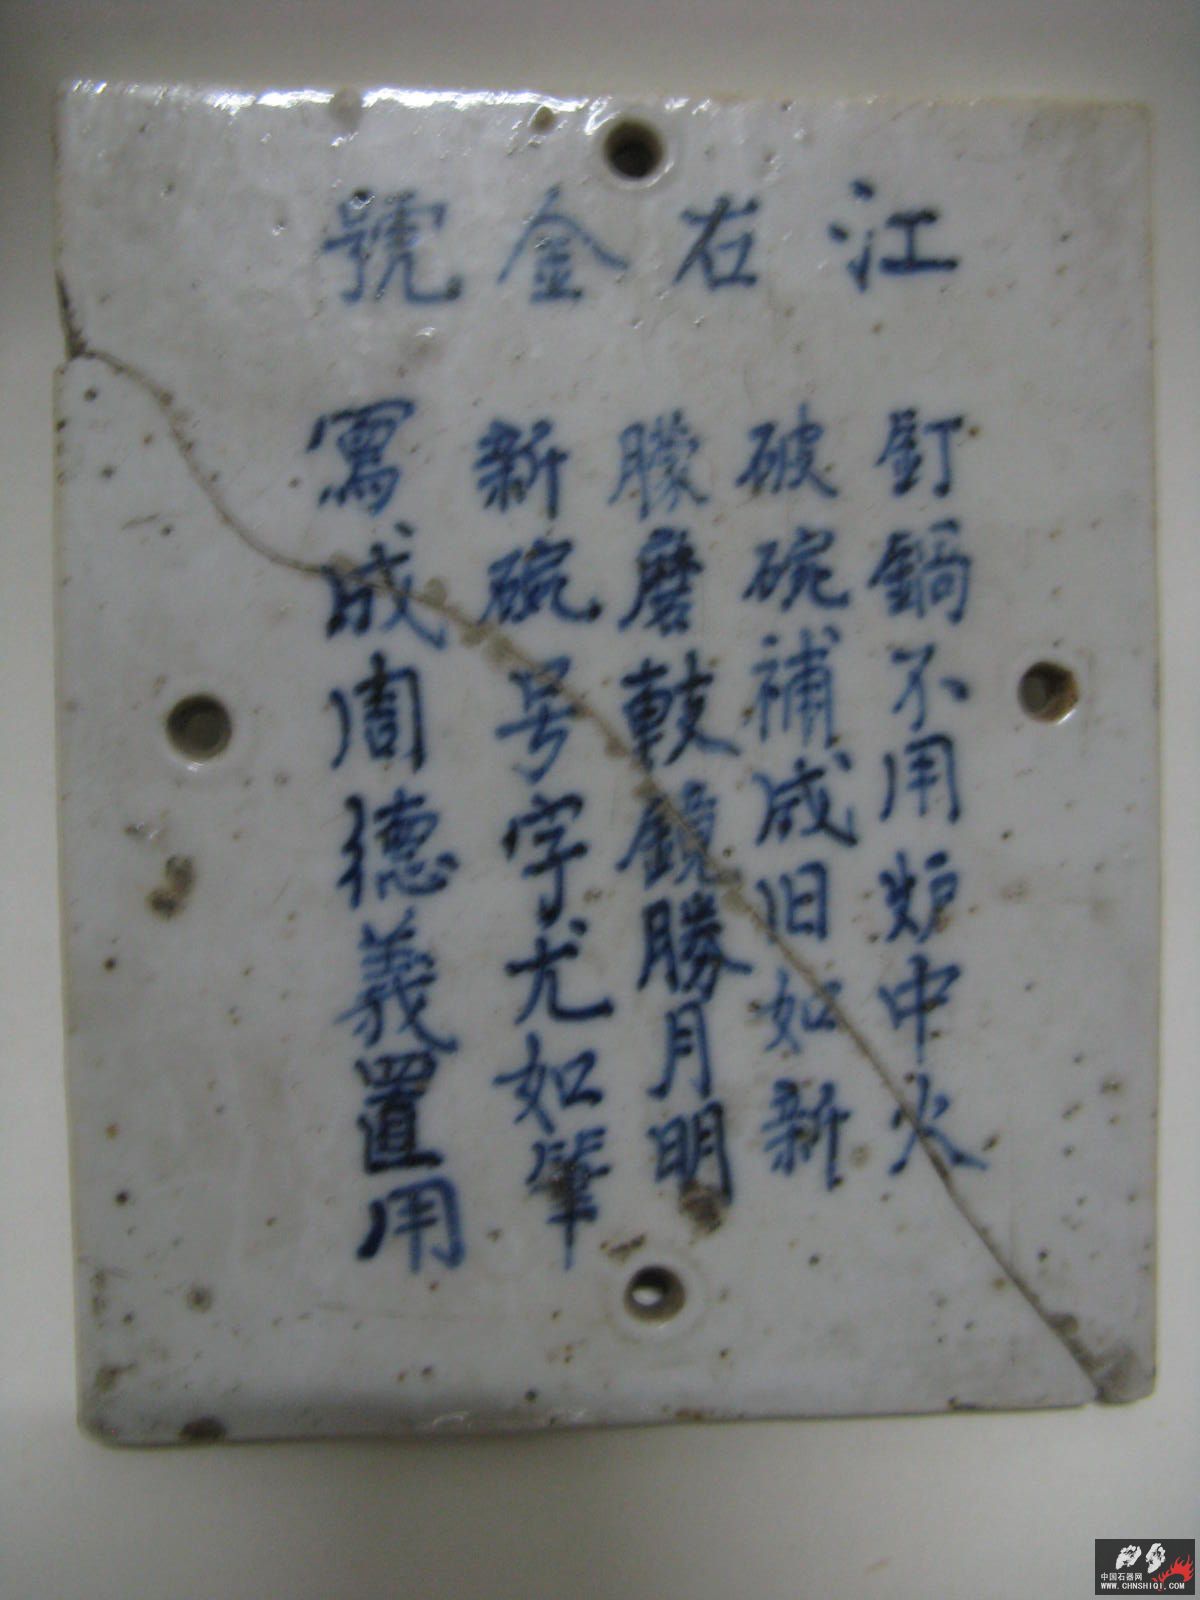 江右金號
釘鍋不用炉中火
破碗補成旧如新
朦磨鼓鏡勝月明
新碗号字尤如肇
寫成周德義置用
中国石器网
WWW.CHNSHIQI.COM